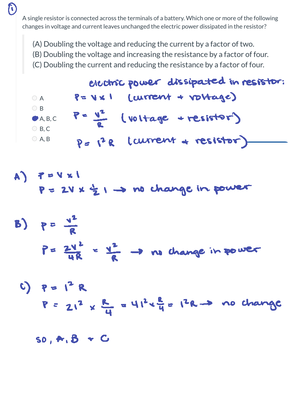 ①
A single resistor is connected across the terminals of a battery. Which one or more of the following
changes in voltage and current leaves unchanged the electric power dissipated in the resistor?
(A) Doubling the voltage and reducing the current by a factor of two.
(B) Doubling the voltage and increasing the resistance by a factor of four.
(C) Doubling the current and reducing the resistance by a factor of four.
electric power dissipated in resistor:
A
B
A, B, C
B, C
A, B
P = V x I (current + voltage)
P = V²/R (voltage + resistor)
P = I²R (current + resistor)
A) P = V x I
P = 2V x ½ I → no change in power
B) P = V²/R
P = 2V²/4R = V²/R → no change in power
C) P = I² R
P = 2I² x R/4 = 4I² x R/4 = I²R → no change
so, A, B + C